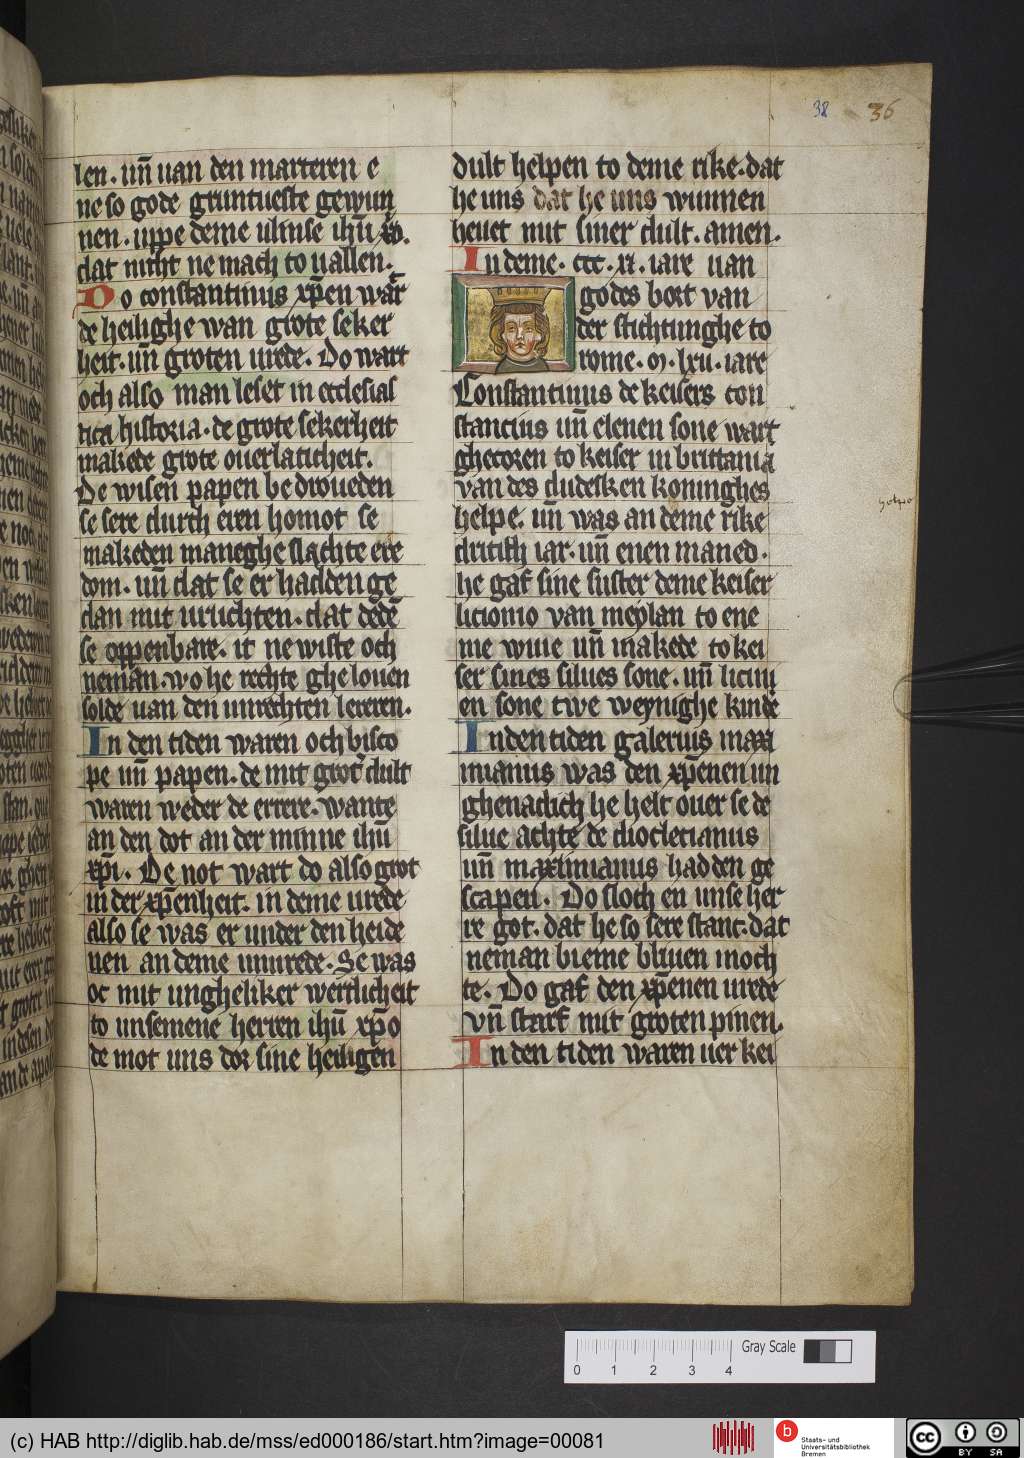 38 36
len. uñ uan den marteren e
ne so gode gruntueste gewun
nen. uppe deme ulinse ihū xp̄o.
dat nicht ne mach to uallen.
Do constantinus xp̄en wart
de heilighe wan grote seker
heit. uñ groten urede. Do wart
och also man leset in ecclesias
tica historia. de grote sekerheit
makede grote ouerlaticheit.
De wisen papen bedroueden
se sere durch eren homot se
makeden maneghe slachte ere
dom. uñ dat se er hadden ge
dan mit uruchten. dat dedē
se oppenbare. it ne wiste och
neman. wo he rechte ghe louen
solde uan den unrechten lereren.
In den tiden waren och bisco
pe uñ papen. de mit grot' dult
waren weder de errere. wante
an den dot an der minne ihū
xp̄i. De not wart do also grot
in der xp̄enheit. in deme urede
also se was er under den heide
nen an deme unurede. Se was
oc mit ungheliker wertlicheit
to unsemene herren ihū xp̄o
de mot uns dor sine heiligen
dult helpen to deme rike. dat
he uns dat he uns wunnen
heuet mit siner dult. amen.
In deme. ccc. xi. iare uan
godes bort van
der stichtunghe to
rome. m. lxii. iare
Constantinus de keisers con
stancius uñ elenen sone wart
ghecoren to keiser in brittania
van des dudesken koninghes
helpe. uñ was an deme rike
dritich iar. uñ enen maned.
he gaf sine suster deme keiser
licionio van meylan to ene
me wiue uñ makede to kei
ser sines silues sone. uñ licini
en sone twe weynighe kinde
In den tiden galerius maxi
mianus was den xp̄enen un
ghenadich he helt ouer se de
silue achte de diocletianus
uñ maximianus hadden ge
scapen. Do sloch en unse her
re got. dat he so sere stanc. dat
neman bi eme bliuen moch
te. Do gaf den xp̄enen urede
vñ starf mit groten pinen.
In den tiden waren uer kei
helpe
Gray Scale
0 1 2 3 4
(c) HAB http://diglib.hab.de/mss/ed000186/start.htm?image=00081
b
Staats- und
Universitätsbibliothek
Bremen
cc BY SA